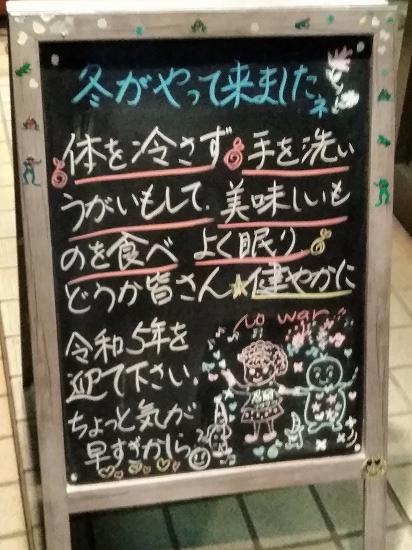 冬がやって来ましたネ
体を冷さず 手を洗い
うがいもして、美味しいも
のを食べ よく眠り
どうか皆さん★健やかに
No war
令和5年を
迎て下さい、
ちょっと気が
早すぎかしら